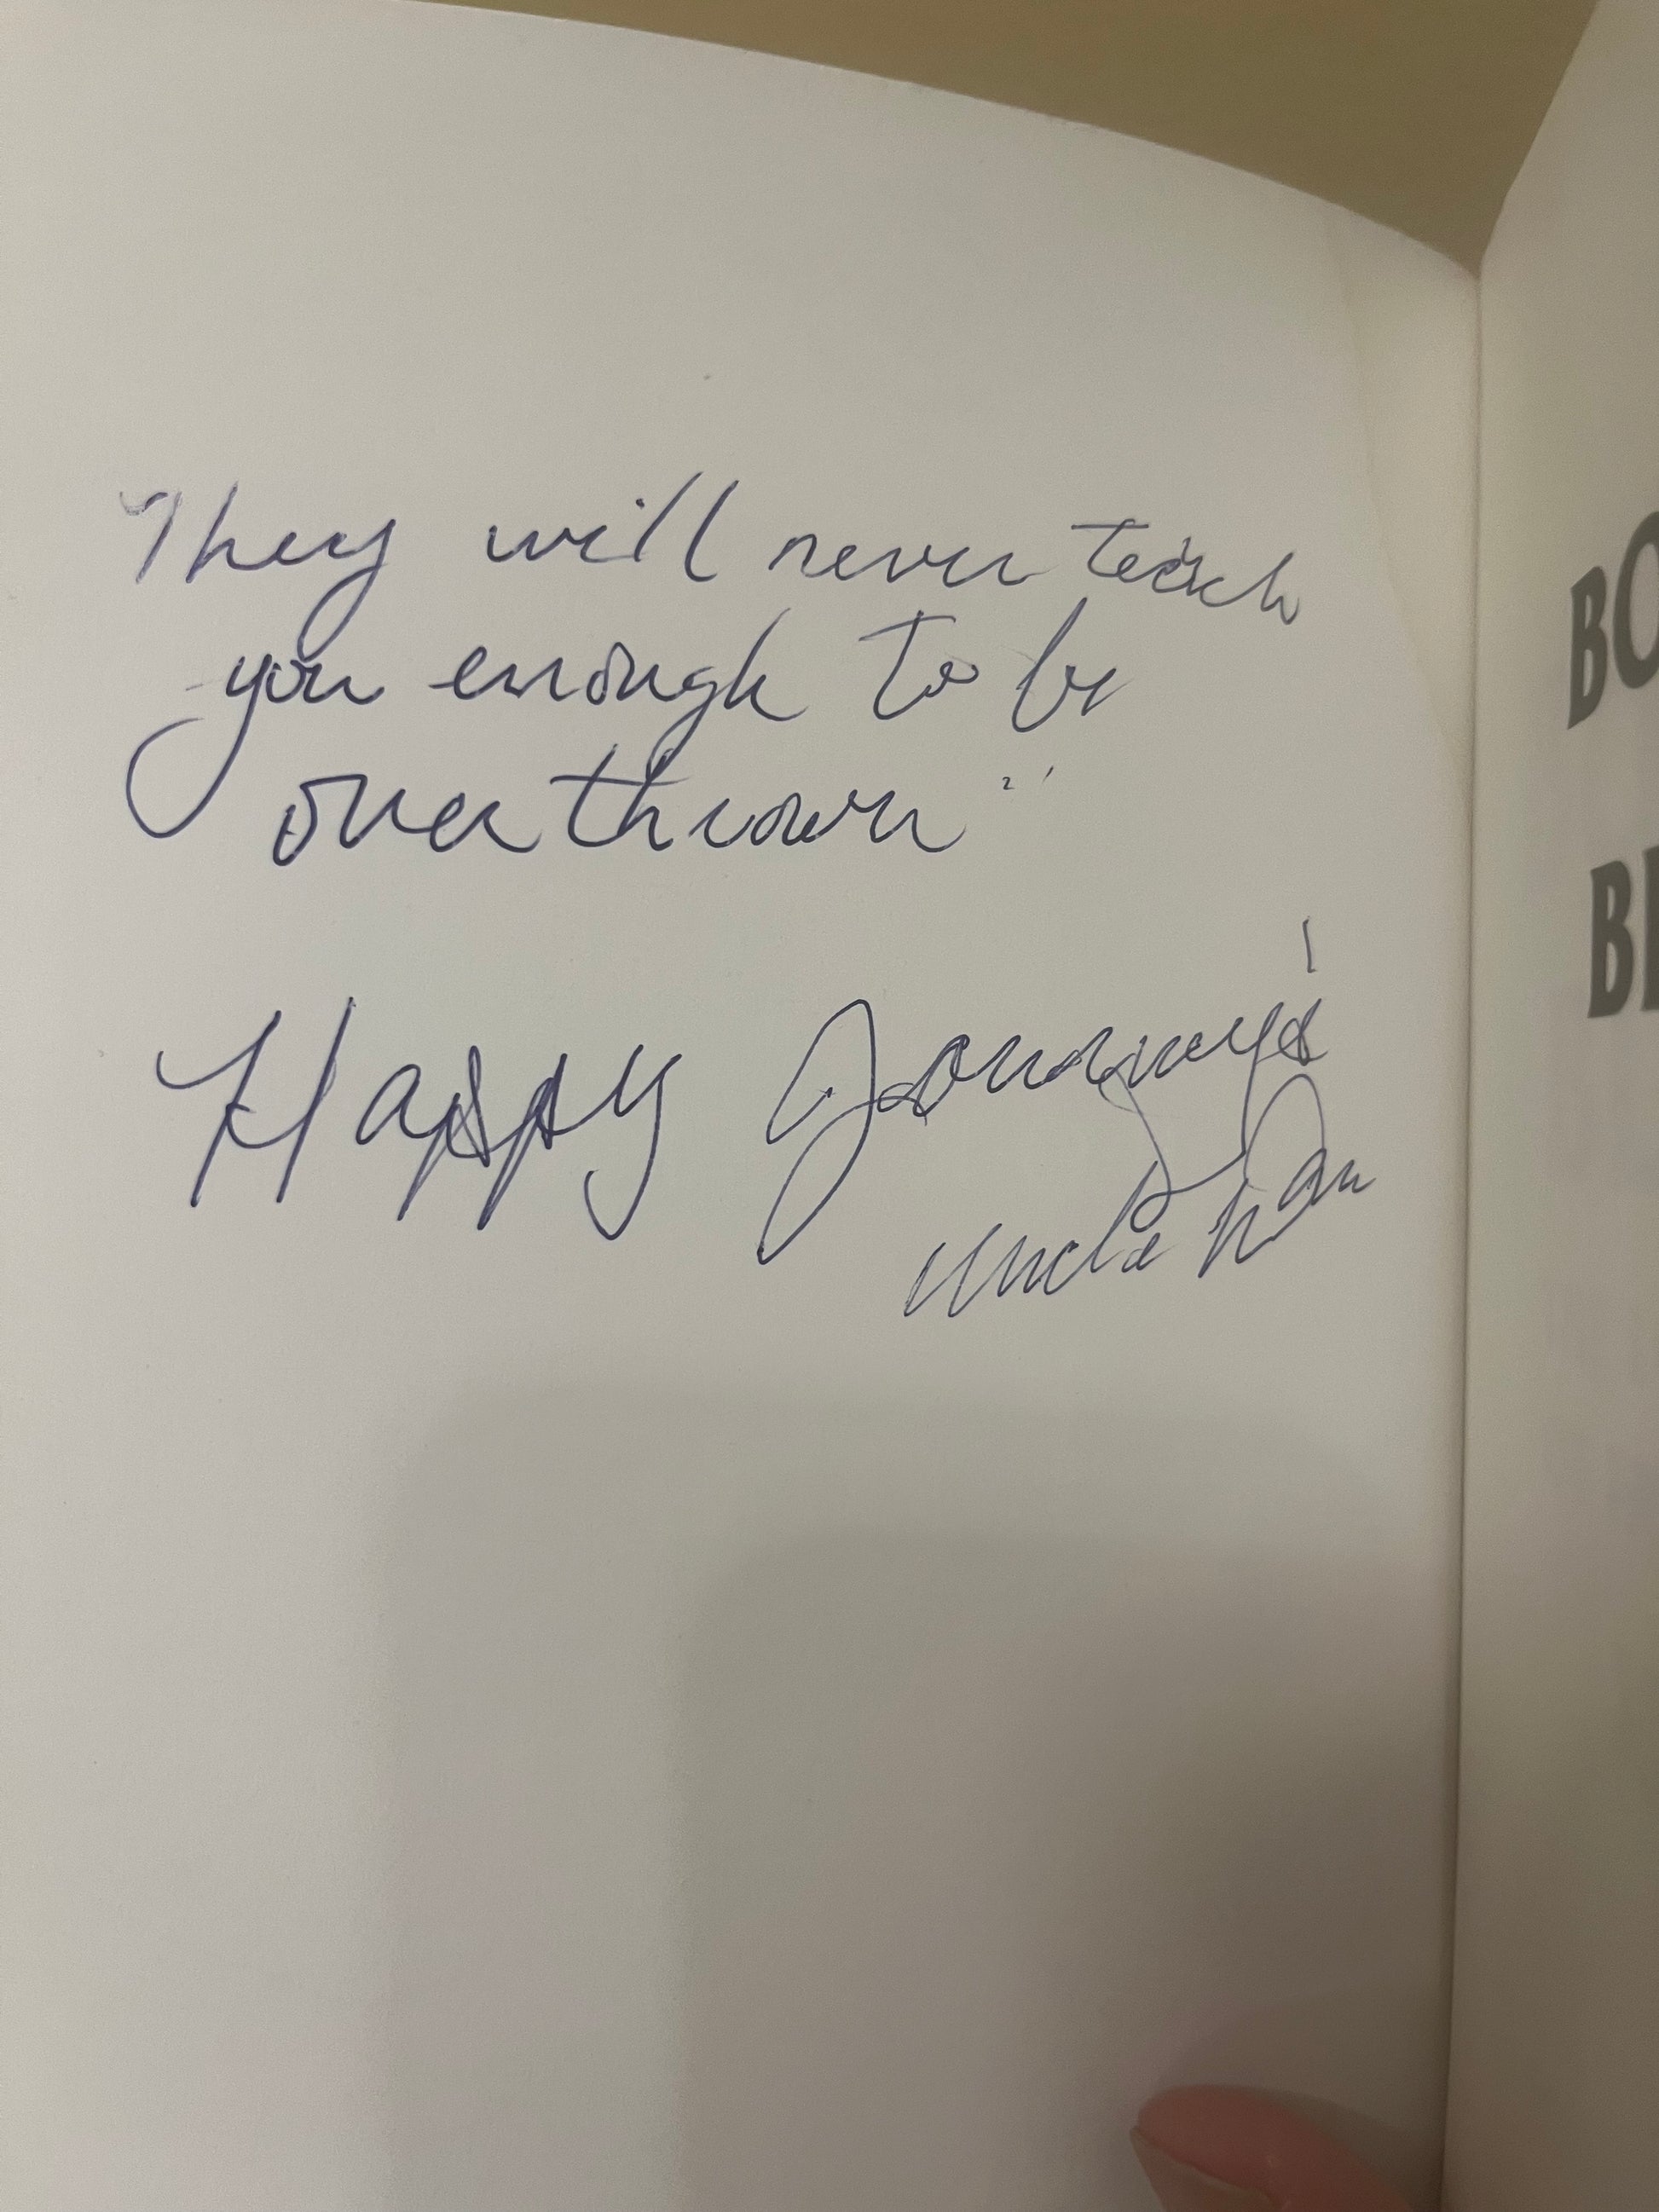 They will never teach
you enough to be
overthrown"
Happy Journeys!
Uncle Dan
BO
BE